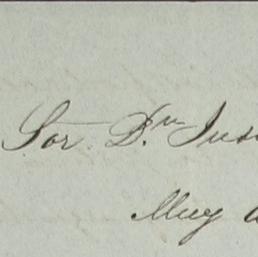 Sor. D.n Jus
Muy a